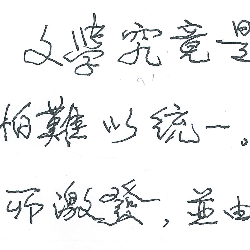 文學究竟是
怕難以統一。
所激發，並由